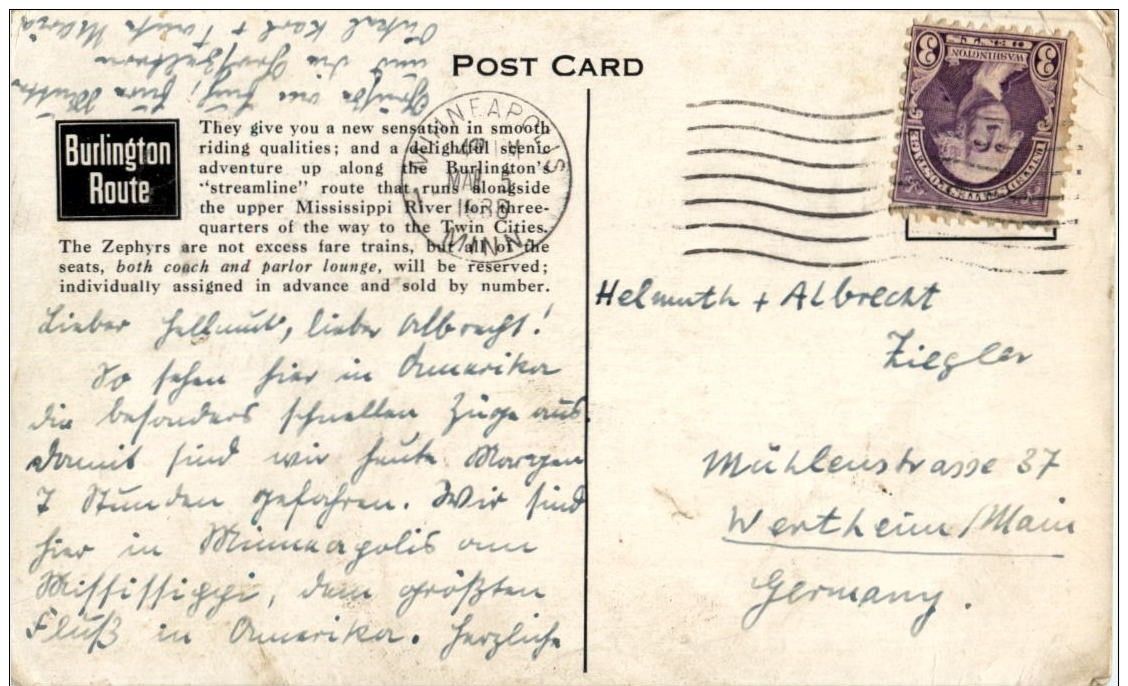 POST CARD
Burlington
Route
They give you a new sensation in smooth
riding qualities; and a delightful scenic
adventure up along the Burlington's
"streamline" route that runs alongside
the upper Mississippi River for three-
quarters of the way to the Twin Cities.
The Zephyrs are not excess fare trains, but all of the
seats, both coach and parlor lounge, will be reserved;
individually assigned in advance and sold by number.
Lieber Hellmut, lieber Albrecht!
So sehen hier in Amerika
die besonders schnellen Züge aus.
Damit sind wir heute Morgen
7 Stunden gefahren. Wir sind
hier in Minneapolis am
Mississippi, dem größten
Fluß in Amerika. Herzliche
Grüße an Euch, Eure Mutter
und die Großeltern
Onkel Karl + Tante Maria
MINNEAPOLIS
MINN.
3 3
WASHINGTON
UNITED STATES POSTAGE
Helmuth + Albrecht
Ziegler
Mühlenstrasse 37
Wertheim/Main
Germany.